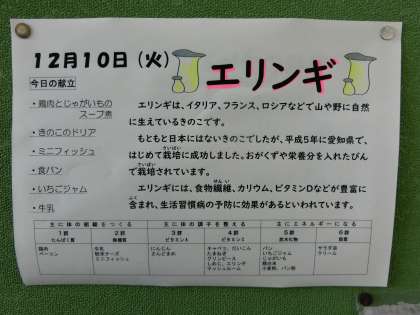 12月10日（火）
エリンギ
今日の献立
・鶏肉とじゃがいものスープ煮
・きのこのドリア
・ミニフィッシュ
・食パン
・いちごジャム
・牛乳
エリンギは、イタリア、フランス、ロシアなどで山や野に自然
に生えているきのこです。
もともと日本にはないきのこでしたが、平成5年に愛知県で、
はじめて栽培に成功しました。おがくずや栄養分を入れたびん
で栽培されています。
エリンギには、食物繊維、カリウム、ビタミンDなどが豊富に
含まれ、生活習慣病の予防に効果があるといわれています。
主に体の組織をつくる 主に体の調子を整える 主にエネルギーになる
1群 2群 3群 4群 5群 6群
たんぱく質 無機質 ビタミンA ビタミンC 炭水化物 脂質
鶏肉 牛乳 にんじん キャベツ、だいこん パン サラダ油
ベーコン 粉末チーズ さんどまめ たまねぎ いちごジャム クリーム
ミニフィッシュ グリンピース じゃがいも
しめじ、エリンギ
マッシュルーム 小麦粉、パン粉